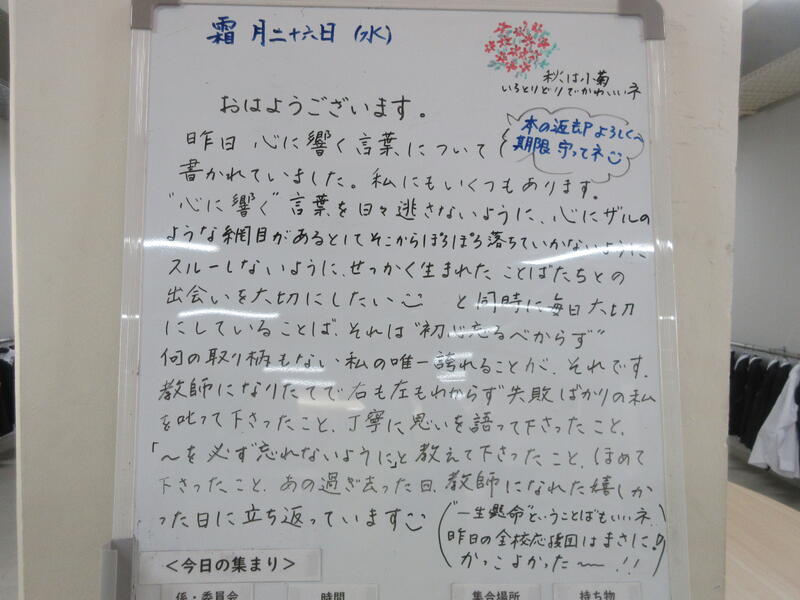 霜月二十六日(水)
秋は小菊
いろとりどりでかわいいネ
おはようございます。
本の返却よろしく〜
期限守ってネ
昨日 心に響く言葉について
書かれていました。私にもいくつもあります。
"心に響く"言葉を日々逃さないように、心にザルの
ような網目があるとしてそこからぽろぽろ落ちていかないように
スルーしないように、せっかく生まれたことばたちとの
出会いを大切にしたい と同時に毎日大切
にしていることば、それは"初心忘るべからず"
何の取り柄もない私の唯一誇れることが、それです。
教師になりたてで右も左もわからず失敗ばかりの私
を叱って下さったこと、丁寧に思いを語って下さったこと、
「〜を必ず忘れないように」と教えて下さったこと、ほめて
下さったこと、あの過ぎ去った日、教師になれた嬉しか
った日に立ち返っています
("一生懸命"ということばもいいネ
昨日の全校応援団はまさに!
かっこよかった〜!!)
<今日の集まり>
係・委員会 時間 集合場所 持ち物